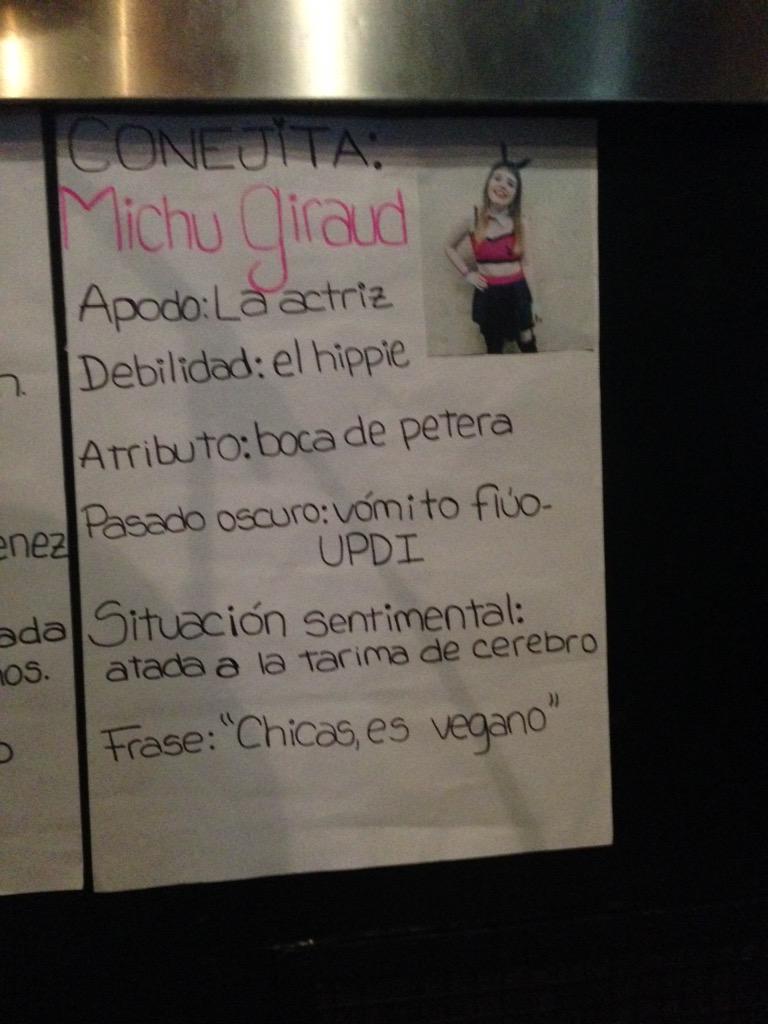 CONEJITA:
Michu Giraud
Apodo: La actriz
Debilidad: el hippie
Atributo: boca de petera
Pasado oscuro: vómito flúo-
UPDI
Situación sentimental:
atada a la tarima de cerebro
Frase: "Chicas, es vegano"
n.
enez
ada
os.
o